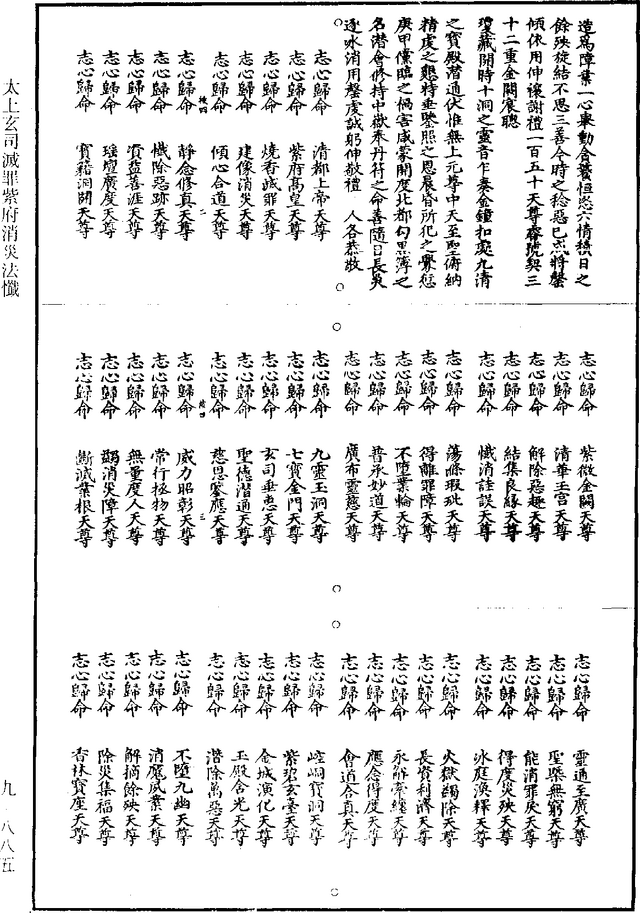 造為障業一心舉動含貪恒恣六情積日之
餘殃旋結不思三善今時之稔惡已成將鏨
傾依用伸禳謝禮一百五十天尊尊號契三
十二重金闕宸聰
瓊藏開時十洞之靈音乍奏金鐘扣處九清
之寶殿潛通伏惟無上元尊中天至聖俯納
精虔之懇特垂鑒照之恩晨昏所化之𠎝愆
庚甲儻臨之禍害咸蒙開度北都勾黑簿之
名潛會修持中嶽奉丹符之命善隨日長災
逐水消用罄虔誠躬伸敬禮　人各恭敬
志心歸命　清都上帝天尊
志心歸命　紫府高皇天尊
志心歸命　燒香滅罪天尊
志心歸命　建像消災天尊
志心歸命　傾心合道天尊
志心歸命　靜念修真天尊
志心歸命　懺除惡跡天尊
志心歸命　資益善涯天尊
志心歸命　瑤壇廣度天尊
志心歸命　寶籍洞開天尊
志心歸命　紫微金闕天尊
志心歸命　清華玉宮天尊
志心歸命　解除惡趣天尊
志心歸命　結集良緣天尊
志心歸命　懺消詿誤天尊
志心歸命　蕩滌瑕玼天尊
志心歸命　得離罪障天尊
志心歸命　不墮業輪天尊
志心歸命　普承妙道天尊
志心歸命　廣布靈慈天尊
志心歸命　九靈玉洞天尊
志心歸命　七寶金門天尊
志心歸命　玄司垂惠天尊
志心歸命　聖德潛通天尊
志心歸命　慈恩響應天尊
志心歸命　威力昭彰天尊
志心歸命　常行拯物天尊
志心歸命　無量度人天尊
志心歸命　蠲消災障天尊
志心歸命　斷滅業根天尊
志心歸命　靈通至廣天尊
志心歸命　聖槩無窮天尊
志心歸命　能消罪戾天尊
志心歸命　得度災殃天尊
志心歸命　氷庭渙釋天尊
志心歸命　火獄蠲除天尊
志心歸命　長資利濟天尊
志心歸命　永解牽纏天尊
志心歸命　應念得度天尊
志心歸命　會道合真天尊
志心歸命　崆峒寶洞天尊
志心歸命　紫碧玄臺天尊
志心歸命　金城演化天尊
志心歸命　玉殿含光天尊
志心歸命　潛除萬惡天尊
志心歸命　不墮九幽天尊
志心歸命　消魔滅業天尊
志心歸命　解摘餘殃天尊
志心歸命　除災集福天尊
志心歸命　香林寶座天尊
太上玄司滅罪紫府消災法懺
九·八八五